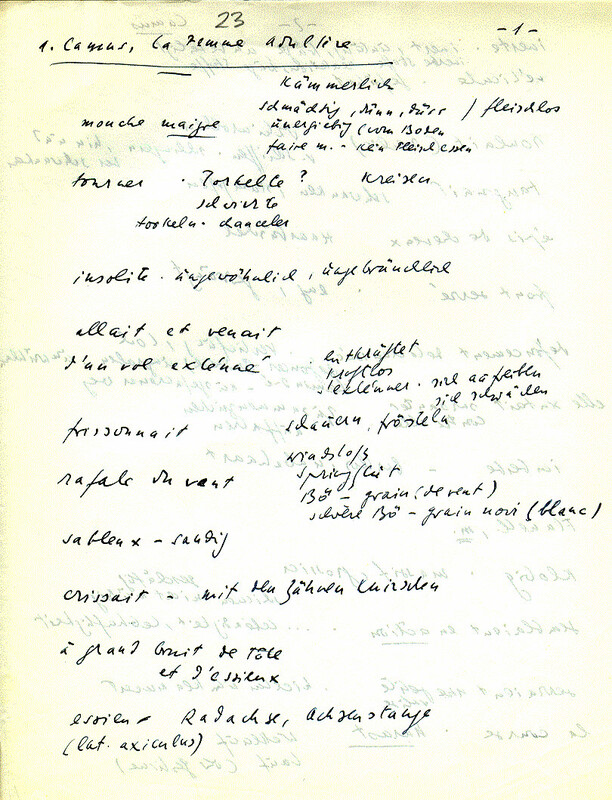 23
-1-
1. Camus, La Femme adultère
kümmerlich
schmächtig, dünn, dürr / fleischlos
mouche maigre unergiebig (vom Boden
faire m. - kein Fleisch essen
tourner . Torkelte ? kreisen
schwirrte
torkeln - chanceler
insolite . ungewöhnlich, ungebräuchlich
allait et venait
d'un vol exténué . entkräftet
kraftlos
s'exténuer . sich aufreiben
sich schwächen
frissonnait schauern, frösteln
rafale du vent windstoß
Springflut
Bö - grain (de vent)
schwere Bö - grain noir (blanc)
sableux - sandig
crissait - mit den Zähnen knirschen
à grand bruit de tôle
et d'essieux
essieu - Radachse, Achsenstange
(lat. axiculus)